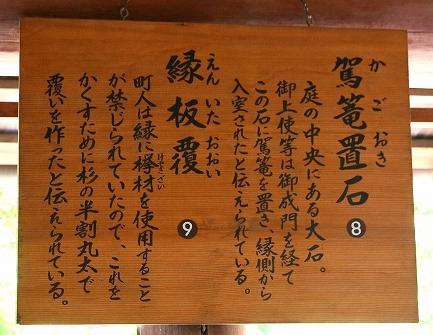 かごおき
駕篭置石
8
庭の中央にある大石。
御上使等は御成門を経て
この石に駕篭を置き、縁側から
入室されたと伝えられている。
えんいたおおい
縁板覆
9
町人は縁に欅材を使用すること
けやきざい
が禁じられていたので、これを
かくすために杉の半割丸太で
覆いを作ったと伝えられている。